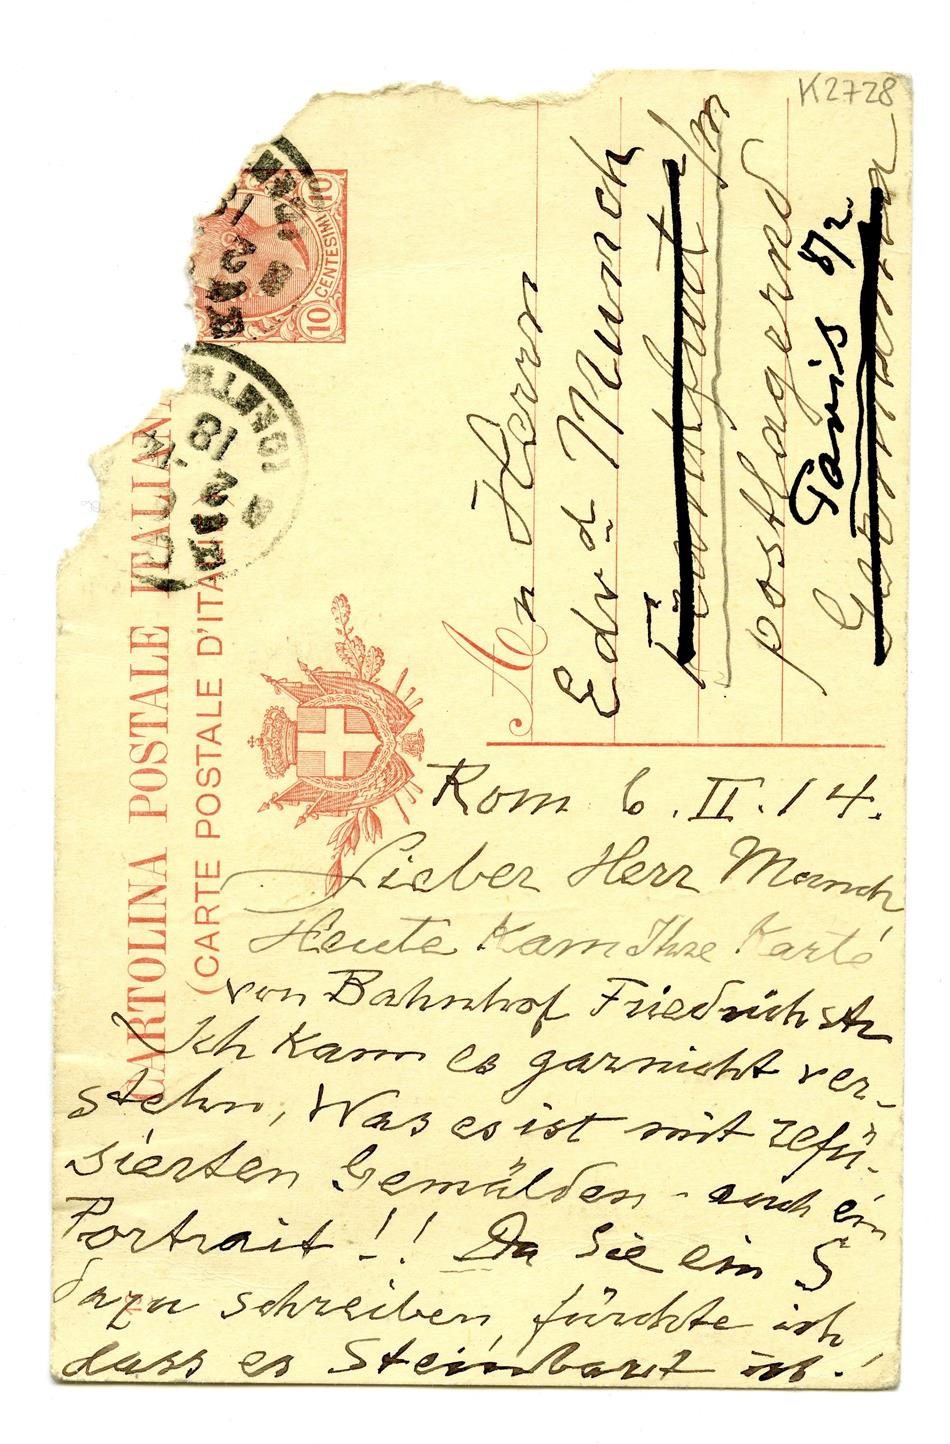 K2728
CARTOLINA POSTALE ITALIAN
(CARTE POSTALE D'ITA
10 CENTESIMI 10
18
2
18
2
An Herrn
Edvd Munch
Frankfurt a/m
postlagernd
Paris 8/2
Rom 6.II.14.
Lieber Herr Munch
Heute kam Ihre Karte
von Bahnhof Friedrichstr
Ich kann es garnicht ver-
stehn, Was es ist mit refü-
sierten Gemälden - auch ein
Portrait!! Da Sie ein S
dazu schreiben, fürchte ich
dass es Steinbart ist!